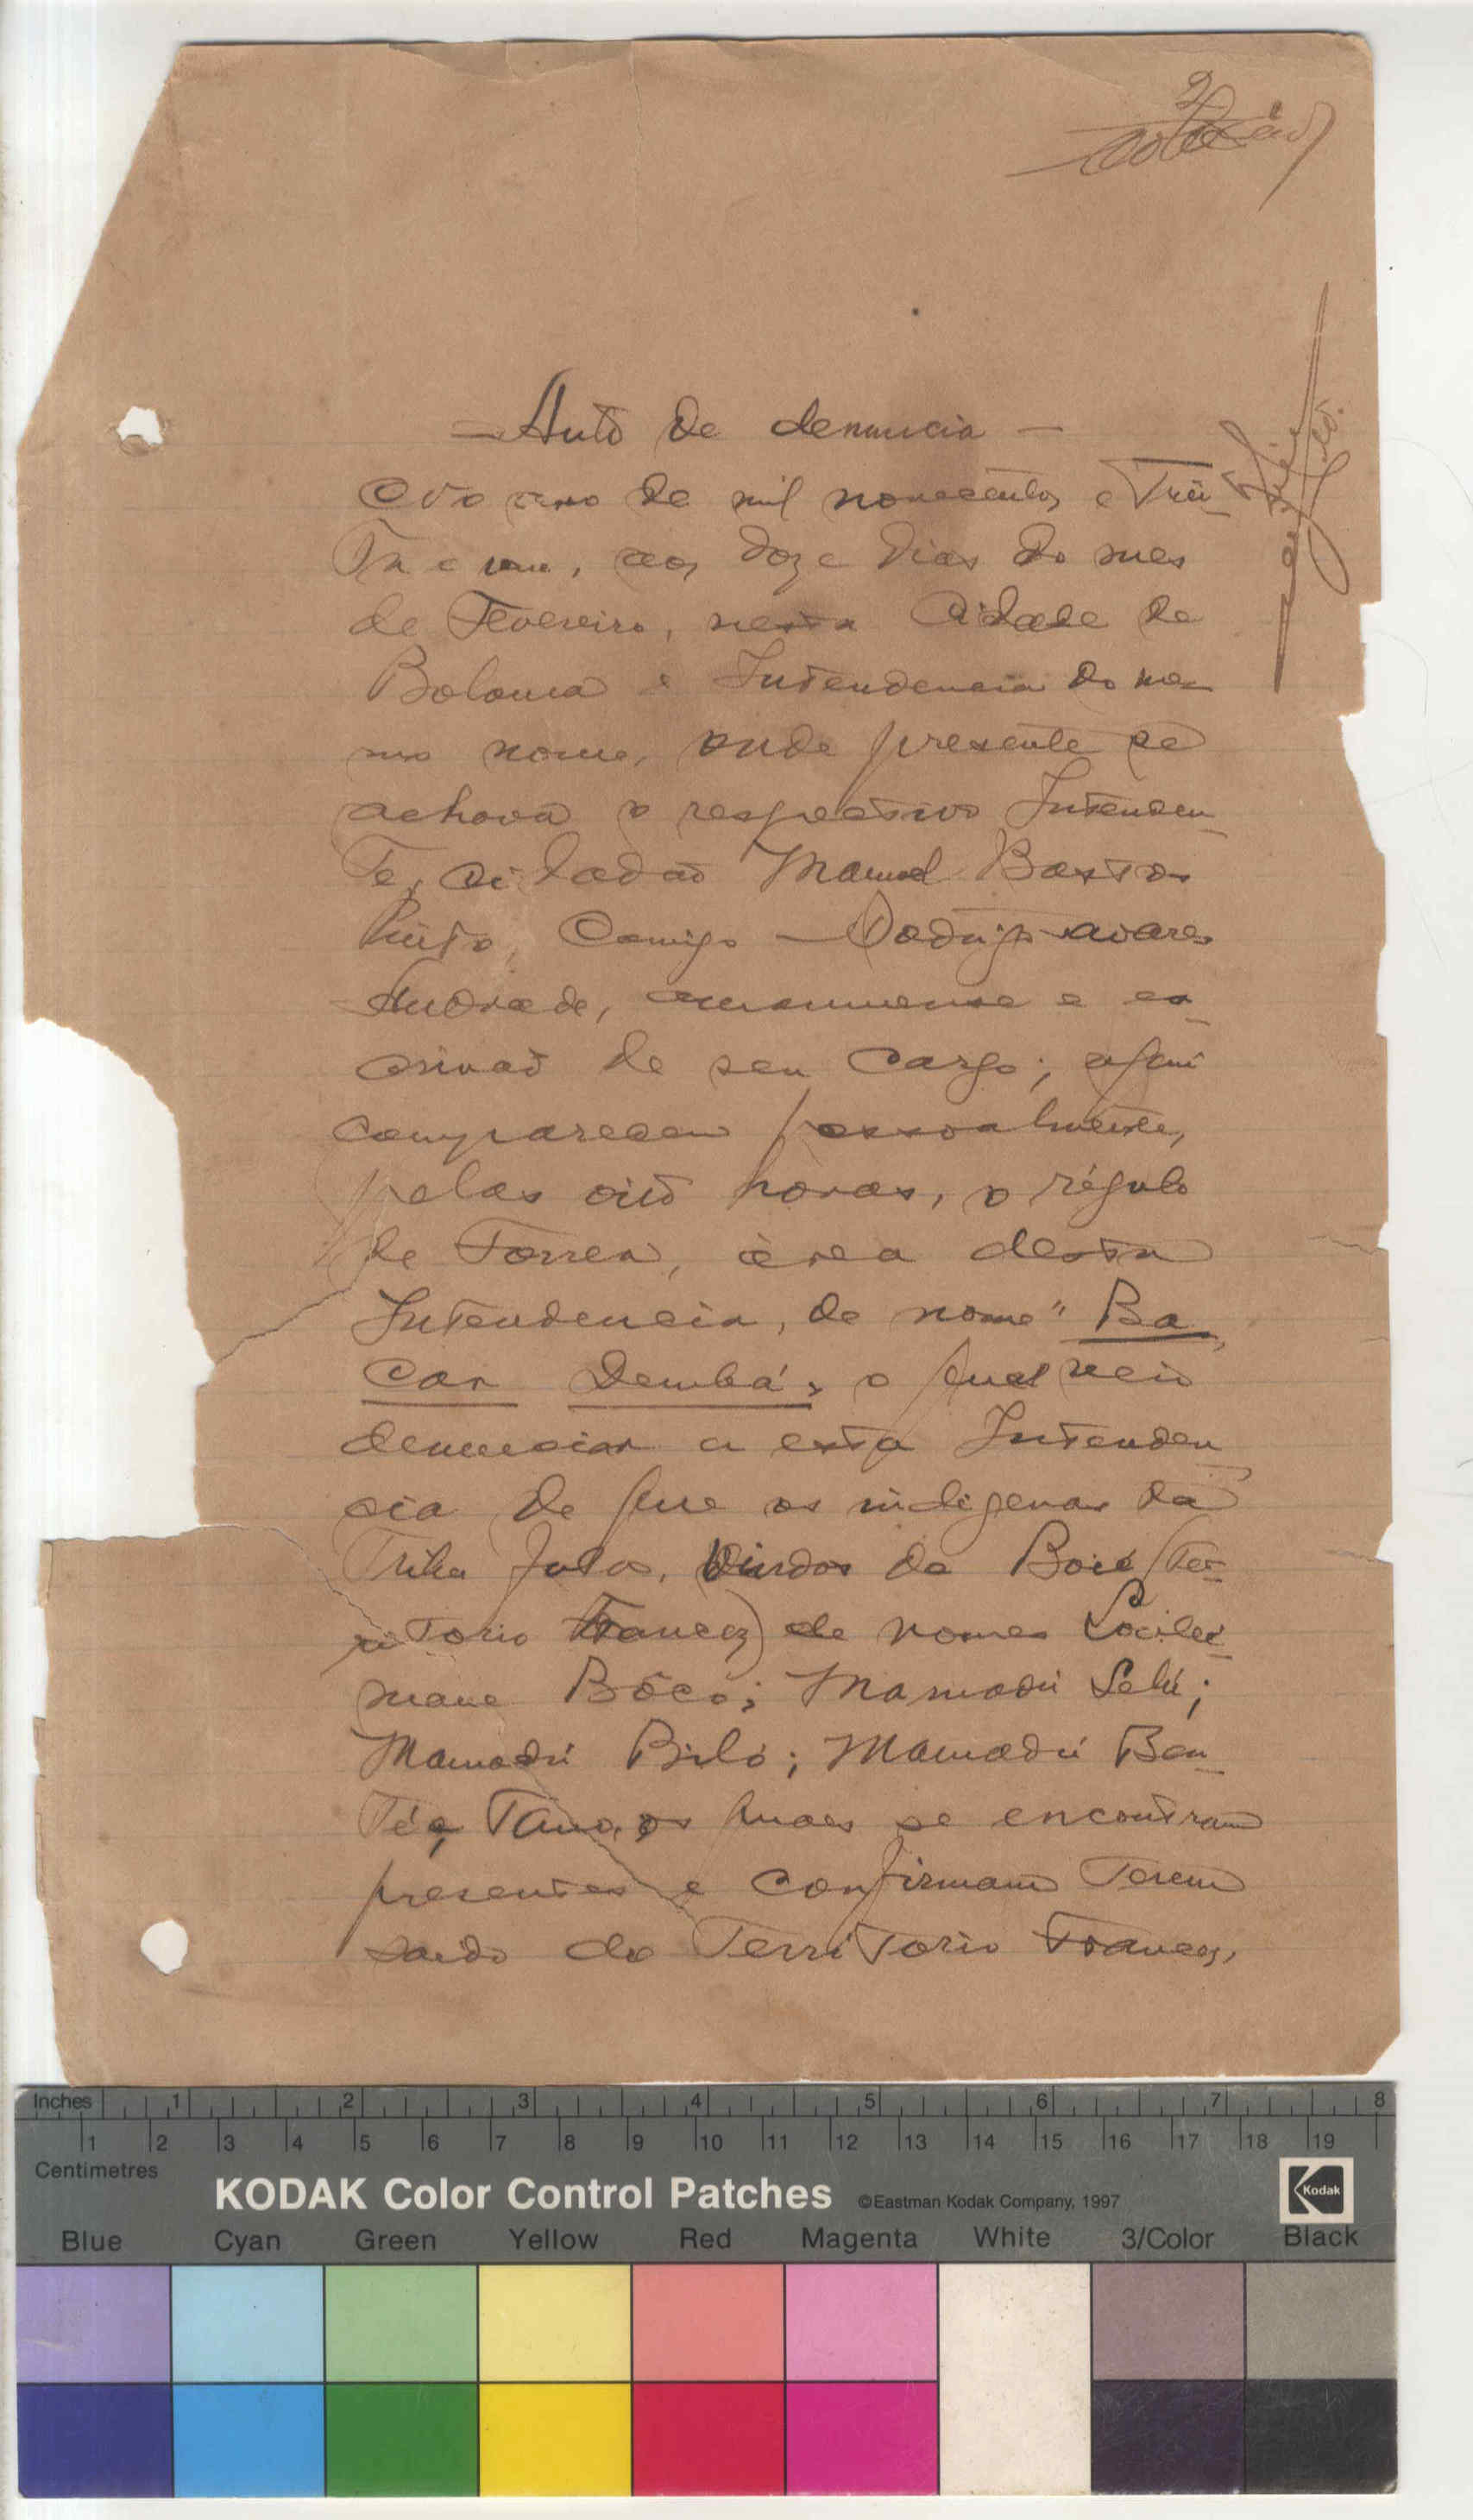 2
— Auto de denuncia —
No ano de mil novecentos e Trin-
Ta e um, aos doze dias do mes
de Fevereiro, nesta Cidade de
Bolama e Intendencia do mes-
mo nome, onde presente se
achava o respectivo Intenden-
Te, cidadão Manuel Bastos
Pinto, Comigo — Rodrigo
Andrade, amanuense e es-
crivão de seu cargo; aqui
compareceu pessoalmente,
pelas oito horas, o régulo
de Forrea, àrea desta
Intendencia, de nome "Ba
car Dembá", o qual veio
denunciar a esta Intenden
cia de que os indigenas da
Tribu fulas, vindos de Boié (Ter-
ri Torio Francez) de nomes
mane Bócó; Mamadú Selú;
Mamadú Biló; Mamadú Ben-
Té, os quaes se encontram
presentes e confirmam Terem
saido do TerriTorio Francez,
Inches 1 2 3 4 5 6 7 8
1 2 3 4 5 6 7 8 9 10 11 12 13 14 15 16 17 18 19
Centimetres
KODAK Color Control Patches ©Eastman Kodak Company, 1997 Kodak
Blue Cyan Green Yellow Red Magenta White 3/Color Black